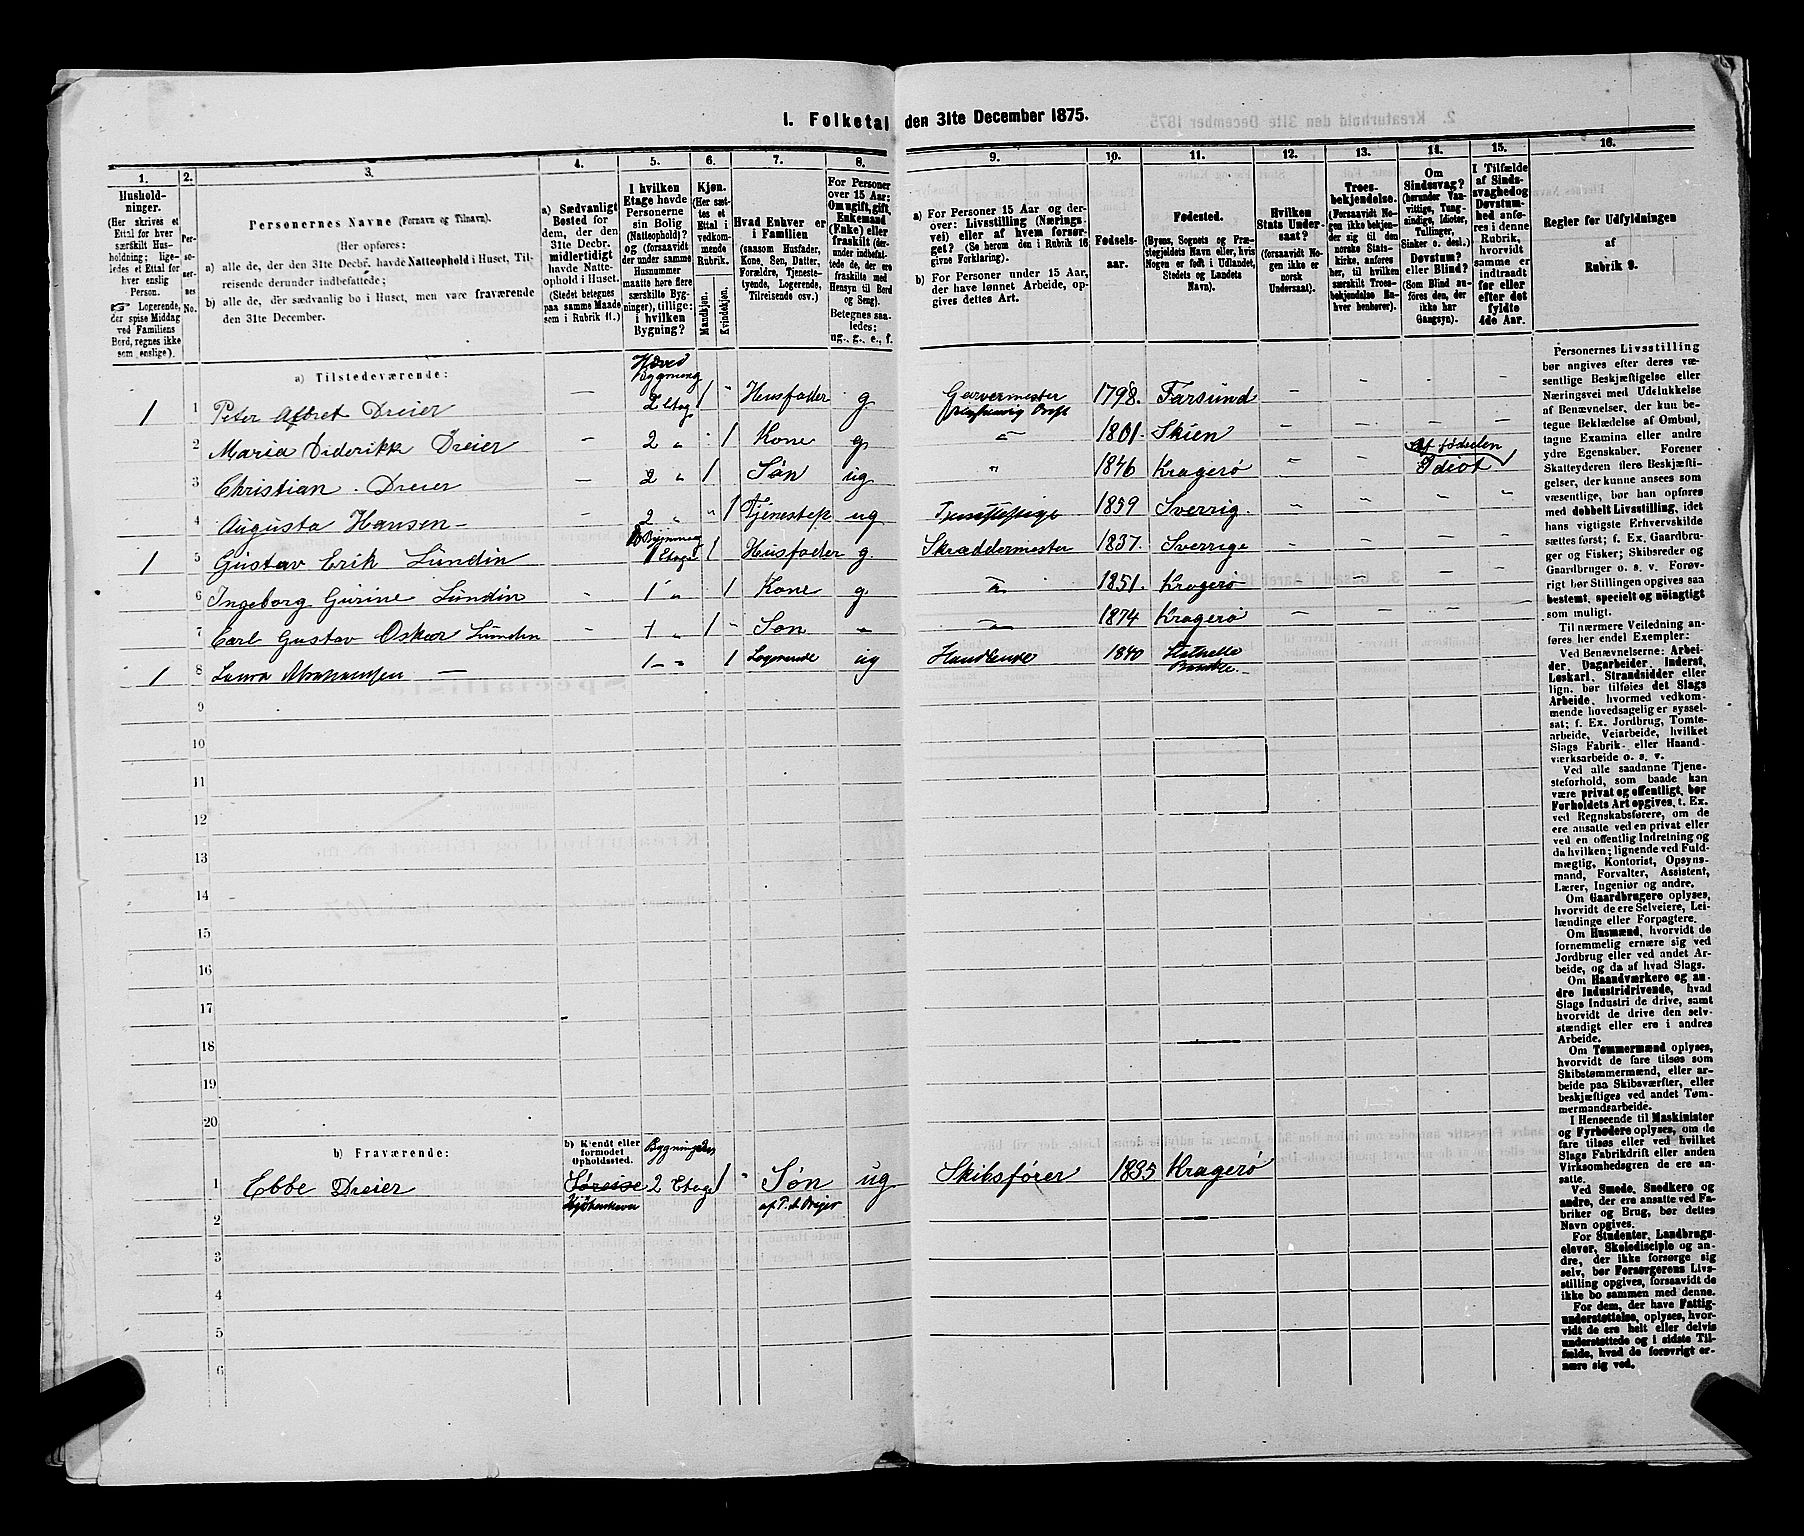 1. Folketal den 31te December 1875.
1. 2. 3. 4. 5. 6. 7. 8. 9. 10. 11. 12. 13. 14. 15. 16.
Hushold-
ninger.
(Her skrives et
Ettal for hver
særskilt Hus-
holdning; lige-
ledes et Ettal for
hver enslig
Person.
☞ Logerende,
der spise Middag
ved Familiens
Bord, regnes ikke
som enslige).
Per-
so-
ner-
nes
No.
Personernes Navne (Fornavn og Tilnavn).
(Her opføres:
a) alle de, der den 31te Decbr. havde Natteophold i Huset, Til-
reisende derunder indbefattede;
b) alle de, der sædvanlig bo i Huset, men vare fraværende
den 31te December.
a) Sædvanligt
Bosted for
dem, der den
31te Decbr.
midlertidigt
havde Natte-
ophold i Huset.
(Stedet betegnes
paa samme Maade
som i Rubrik 11.)
I hvilken
Etage havde
Personerne
sin Bolig
(Natteophold)?
og (forsaavidt
der under samme
Husnummer
maatte høre flere
særskilte Byg-
ninger), tillige:
i hvilken
Bygning?
Kjøn.
(Her sæt-
tes et
Ettal i
vedkom-
mende
Rubrik.
Mandkjøn.
Kvindekjøn.
Hvad Enhver er
i Familien
(saasom Husfader,
Kone, Søn, Datter,
Forældre, Tjeneste-
tyende, Logerende,
Tilreisende osv.)
For Personer
over 15 Aar:
Om ugift, gift,
Enkemand
(Enke) eller
fraskilt (der-
under indbefat-
tede de, der ere
fraskilte med
Hensyn til Bord
og Seng).
Betegnes saa-
ledes:
ug., g., e., f.
a) For Personer 15 Aar og der-
over: Livsstilling (Nærings-
vei) eller af hvem forsør-
get? (Se herom den i Rubrik 16
givne Forklaring).
b) For Personer under 15 Aar,
der have lønnet Arbeide, op-
gives dettes Art.
Fødsels-
aar.
Fødested.
(Byens, Sognets og Præ-
stegjeldets Navn eller, hvis
Nogen er født i Udlandet,
Stedets og Landets
Navn).
Hvilken
Stats Under-
saat?
(forsaavidt No-
gen ikke er
norsk
Undersaat).
Troes-
bekjendelse.
(Forsaavidt No-
gen ikke bekjen-
der sig til den
norske Stats-
kirke, anføres
her, til hvilken
særskilt Troes-
bekjendelse En-
hver henhører).
Om
Sindssvag?
(herunder Van-
vittige, Tung-
sindige, Idioter,
Tullinger,
Sinker o. desl.)
Døvstum?
eller Blind?
(Som Blind an-
føres den, der
ikke har
Gangsyn).
I Tilfælde
af Sinds-
svaghed og
Døvstum-
hed anfø-
res i denne
Rubrik,
hvorvidt
samme er
indtraadt
før eller
efter det
fyldte
4de Aar.
Regler for Udfyldningen
af
Rubrik 9.
a) Tilstedeværende:
Hoved Bygning
1 1 Peter Albret Dreier — 2 Etag 1 " Husfader g Garvermester 1798. Farsund – – – –
2 Maria Diderikke Dreier – 2 " " 1 Kone g. " 1801. Skien – –
Af fødselen
3 Christian Dreier – 2 " 1 Søn ug " 1846 Kragerø – – Idiot
4 Augusta Hansen – – 2 " " 1 Tjenestep ug Tjenestepige 1859 Sverrig. – – – –
Bygning
1 5 Gustav Erik Lundin 1 Etage 1 Husfader g. Skræddermester 1837. Sverrige – – – –
6 Ingeborg Gurine Lundin – 1 " 1 Kone g " 1851. Kragerø – –
7 Carl Gustav Oskar Lundin – 1 " 1 " Søn – " 1874 Kragerø – – – –
1 8 Laura Abrahamsen — 1 – " 1 Logerende ug Handlende 1840 Stathelle
Bamble. –
9
10
11
12
13
14
15
16
17
18
19
20
b) Fraværende:
b) Kjendt eller
formodet
Opholdssted.
1 Ebbe Dreier Søreise 2 Etage 1 " Søn ug Skibsfører 1835 Kragerø
Kjøbenhavn af P. A. Dreier
2
3
4
5
6
Personernes Livsstilling
bør angives efter deres væ-
sentlige Beskjæftigelse eller
Næringsvei med Udelukkelse
af Benævnelser, der kun be-
tegne Beklædelse af Ombud,
tagne Examina eller andre
ydre Egenskaber. Forener
Skatteyderen flere Beskjæfti-
gelser, der kunne ansees som
væsentlige, bør han opføres
med dobbelt Livsstilling, idet
hans vigtigste Erhvervskilde
sættes først; f. Ex. Gaardbru-
ger og Fisker; Skibsreder og
Gaardbruger o. s. v. Forøv-
rigt bør Stillingen opgives saa
bestemt, specielt og nøiagtigt
som muligt.
Til nærmere Veiledning an-
føres her endel Exempler:
Ved Benævnelserne: Arbei-
der, Dagarbeider, Inderst,
Løskarl, Strandsidder eller
lign. bør tilføies det Slags
Arbeide, hvormed vedkom-
mende hovedsagelig er syssel-
sat; f. Ex. Jordbrug, Tomte-
arbeide, Veiarbeide, hvilket
Slags Fabrik- eller Haand-
værksarbeide o. s. v.
Ved alle saadanne Tjene-
steforhold, som baade kan
være privat og offentligt, bør
Forholdets Art opgives, t. Ex.
ved Regnskabsførere, om de
ere ansatte ved en privat eller
ved en offentlig Indretning og
da hvilken; lignende ved Fuld-
mægtig, Kontorist, Opsyns-
mand, Forvalter, Assistent,
Lærer, Ingeniør og andre.
Om Gaardbrugere oplyses,
hvorvidt de ere Selveiere, Lei-
lændinge eller Forpagtere.
Om Husmænd, hvorvidt de
fornemmelig ernære sig ved
Jordbrug eller ved andet Ar-
beide, og da af hvad Slags.
Om Haandværkere og an-
dre Industridrivende, hvad
Slags Industri de drive, samt
hvorvidt de drive den selv-
stændigt eller ere i andres
Arbeide.
Om Tømmermænd oplyses,
hvorvidt de fare tilsøs som
Skibstømmermænd, eller ar-
beide paa Skibsværfter, eller
beskjæftiges ved andet Tøm-
mermandsarbeide.
I Henseende til Maskinister
og Fyrbødere oplyses, om de
fare tilsøs eller ved hvilket
Slags Fabrikdrift eller anden
Virksomhedsgren de ere an-
satte.
Ved Smede, Snedkere og
andre, der ere ansatte ved Fa-
briker og Brug, bør dettes
Navn opgives.
For Studenter, Landbrugs-
elever, Skoledisciple og an-
dre, der ikke forsørge sig
selv, bør Forsørgerens Livs-
stilling opgives, forsaavidt de
ikke bo sammen med denne.
For dem, der have Fattig-
understøttelse, oplyses, hvor-
vidt de ere helt eller delvis
understøttede og i sidste Til-
fælde, hvad de forøvrigt er-
nære sig ved.